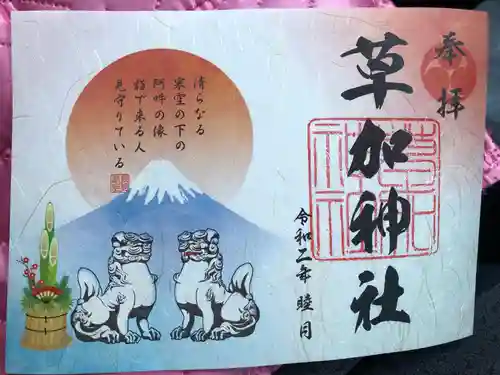 奉拝
草加神社
令和二年 睦月
清らなる
寒空の下の
阿吽の像
詣で来る人
見守りている